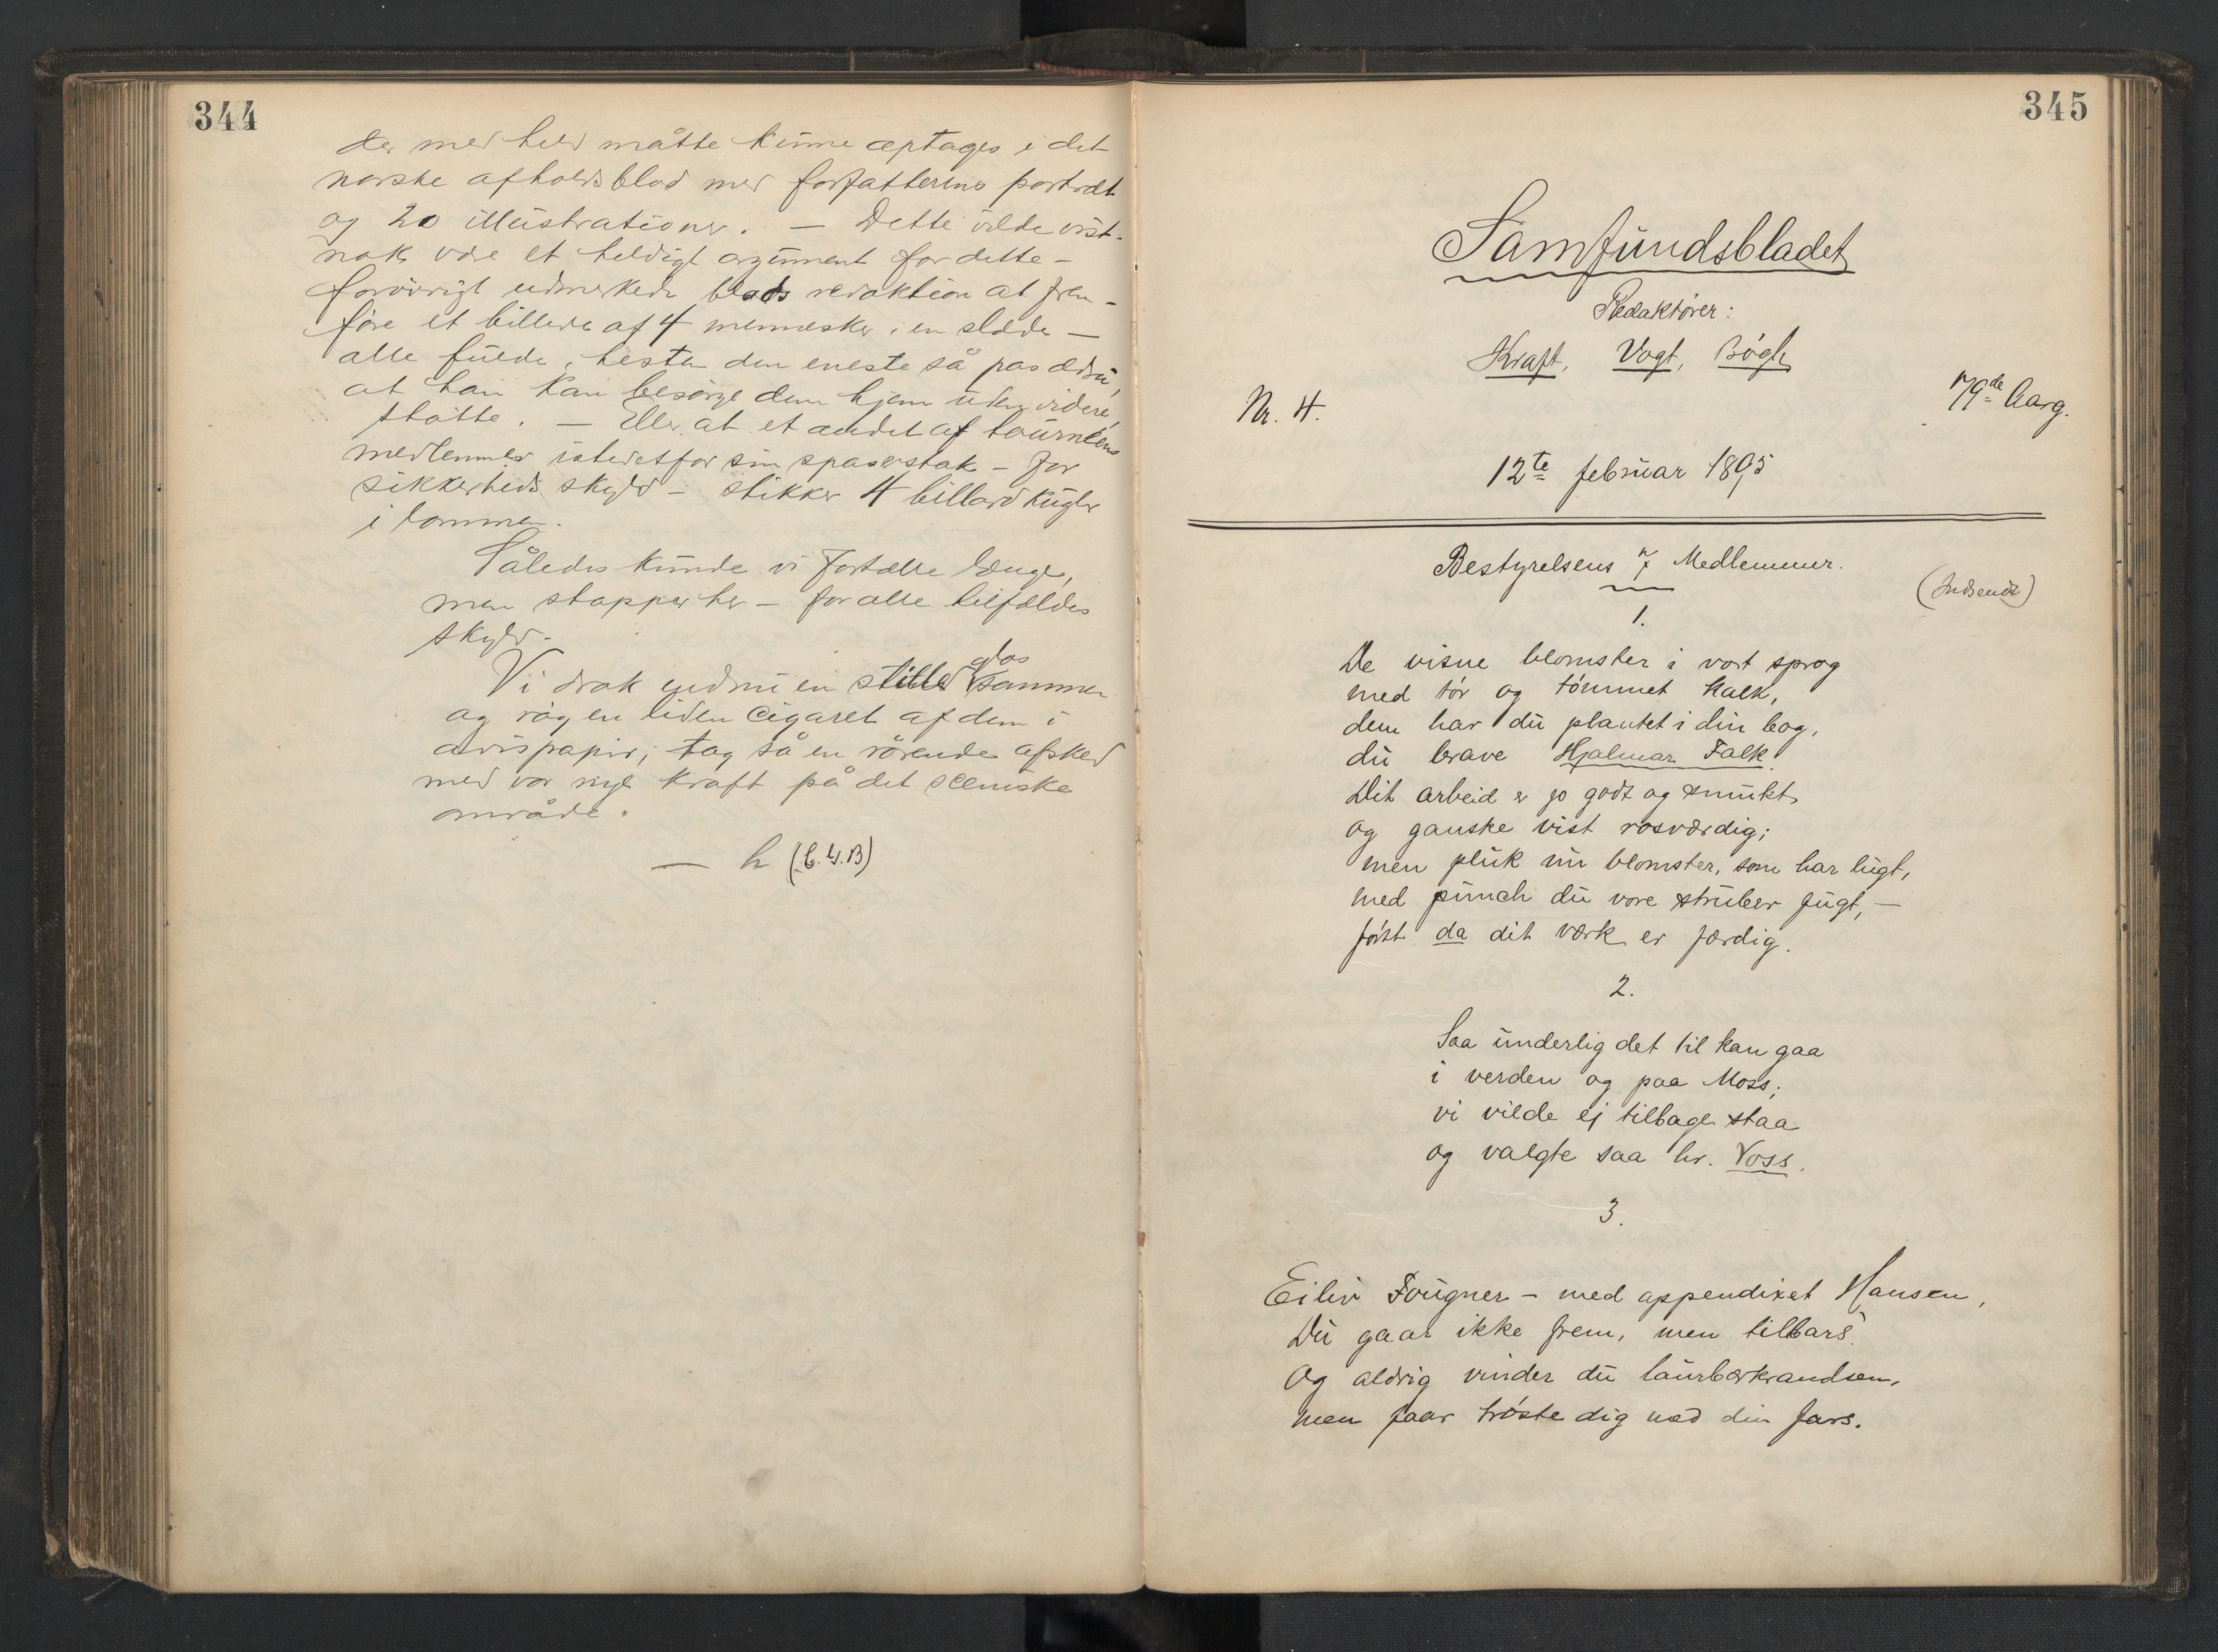 344
der med held måtte kunne optages i det
norske afholdsblad med forfatterens portræt
og 20 illustrationer. — Dette vilde vist-
nok være et heldigt argument for dette -
forövrigt udmerkede blads redaktion at frem-
före et billede af 4 mennesker i en slæde —
alle fulde, hesten den eneste så pas ædru,
at han kan besörge dem hjem uden videre
støtte. — Eller at et andet af tournéens
medlemmer istedetfor sin spaserstok - for
sikkerheds skyld - stikker 4 billardkugler
i lommen.
Således kunde vi fortælle længe,
men stopper her - for alle tilfældes
skyld.
Vi drak endnu en stille glas sammen
og røg en liden cigaret af dem i
avispapir; tog så en rörende afsked
med vor nye kraft på det sceniske
område.
— h (C.G.B)
345
Samfundsbladet
Redaktörer:
Kraft, Vogt, Bögh
Nr. 4.
79de Aarg.
12te februar 1895
Bestyrelsens 7 Medlemmer.
(Indsendt)
1.
De visne blomster i vort sprog
med tör og tömmet kalk,
dem har du plantet i din bog,
du brave Hjalmar Falk.
Dit arbeid er jo godt og smukt
og ganske vist rosværdig;
men pluk nu blomster, som har lugt,
med punch du vore struber fugt, —
först da dit værk er færdig.
2.
Saa underlig det til kan gaa
i verden og paa Moss;
vi vilde ej tilbage staa
og valgte saa hr. Voss.
3.
Eiliv Fougner - med appendixet Hansen,
Du gaar ikke frem, men tilbars.
Og aldrig vinder du laurbærkrandsen,
men faar tröste dig med din fars.